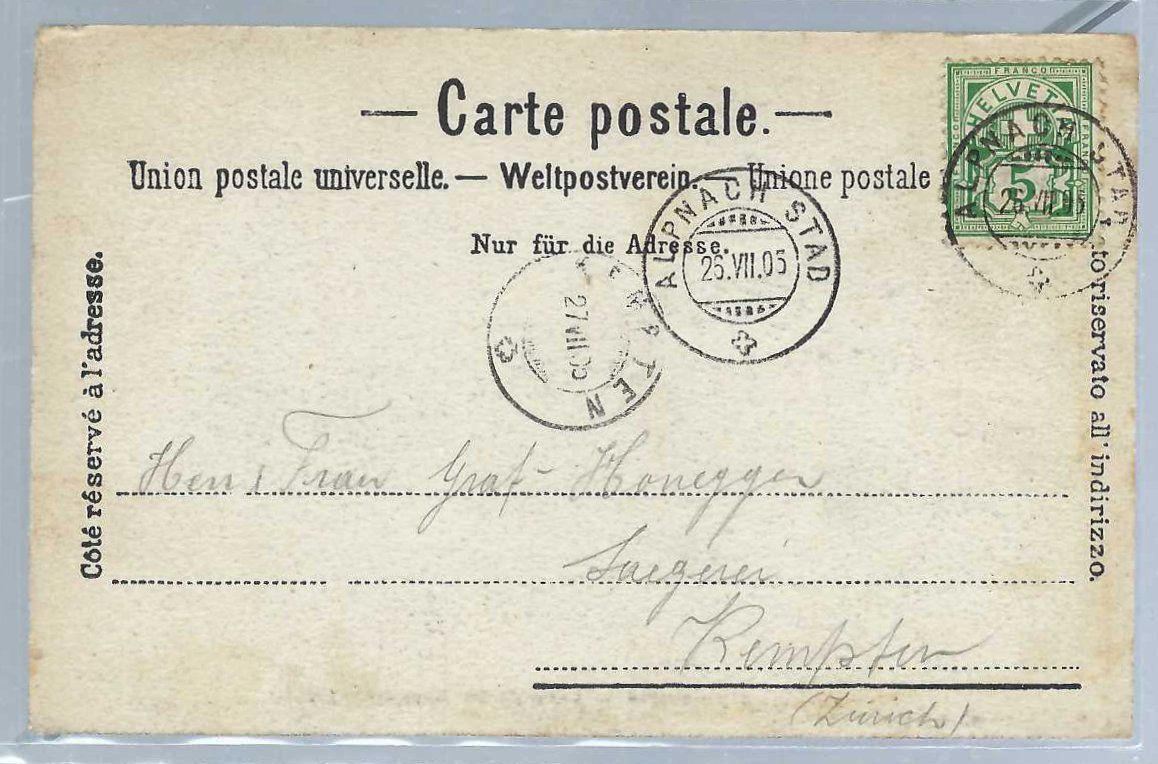 — Carte postale. —
Union postale universelle. — Weltpostverein. — Unione postale
Nur für die Adresse.
Côté réservé à l'adresse.
riservato all'indirizzo.
FRANCO
HELVETIA
5
ALPNACH STAD
26.VII.05
ALPNACH STAD
26.VII.05
KEMPTEN
27.VII.05
Herr & Frau Graf-Honegger
Saegerei
Kempten
(Zürich)